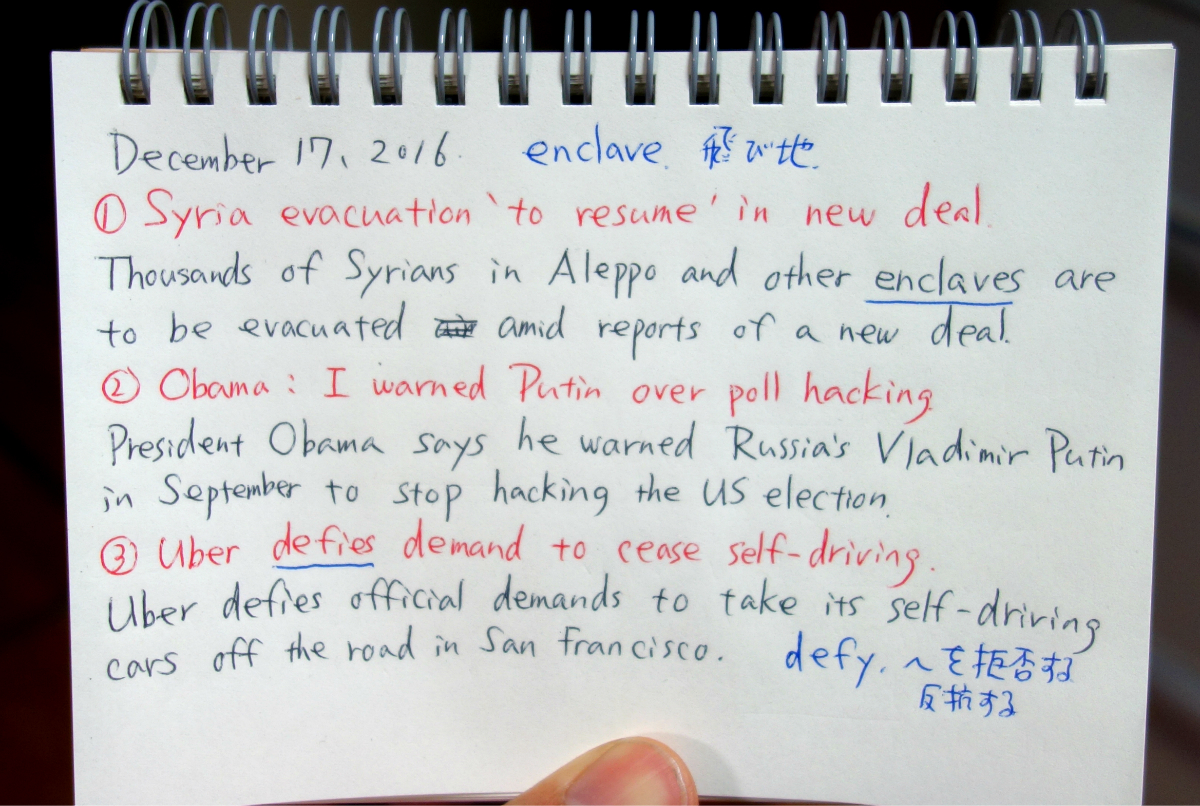 December 17, 2016. enclave. 飛び地.
① Syria evacuation 'to resume' in new deal.
Thousands of Syrians in Aleppo and other enclaves are
to be evacuated amid reports of a new deal.
② Obama: I warned Putin over poll hacking
President Obama says he warned Russia's Vladimir Putin
in September to stop hacking the US election.
③ Uber defies demand to cease self-driving.
Uber defies official demands to take its self-driving
cars off the road in San Francisco. defy. ~を拒否する
反抗する